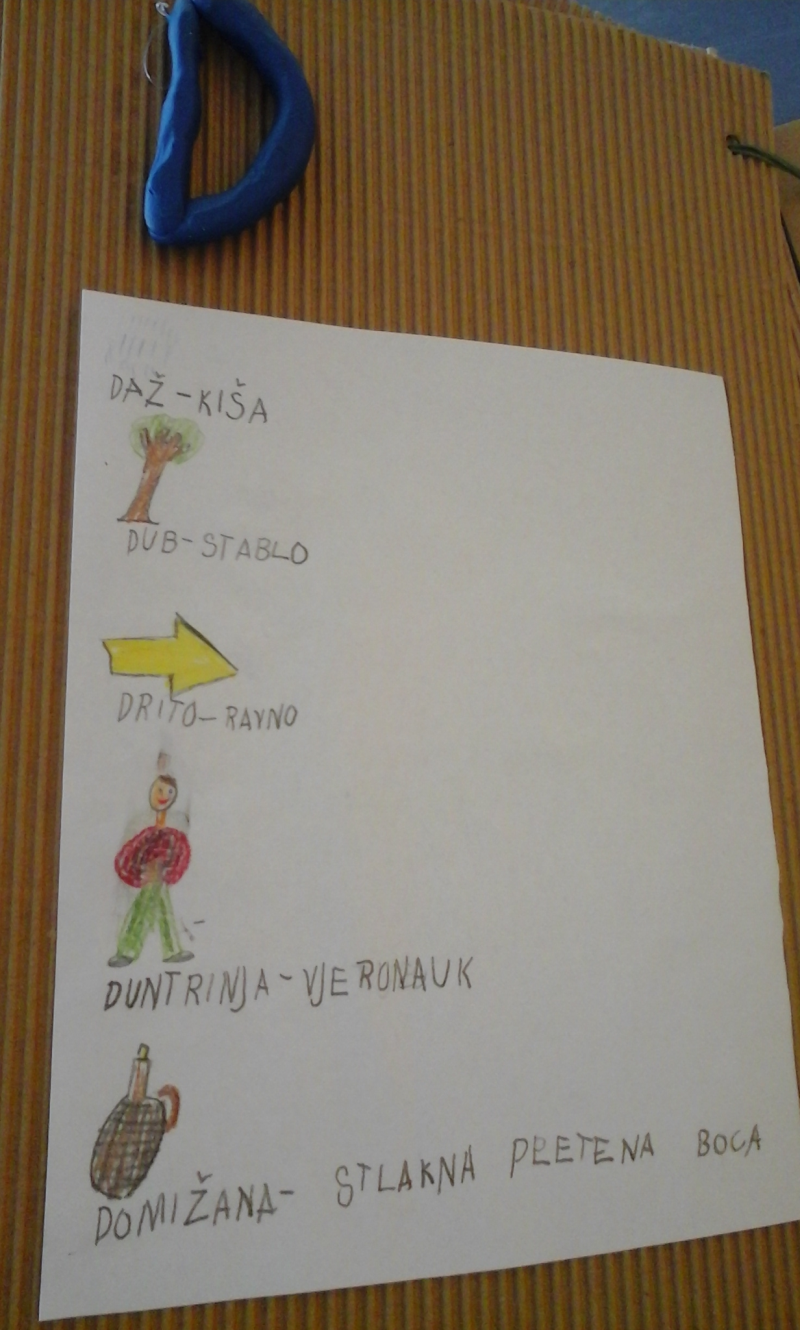 D
DAŽ-KIŠA
DUB-STABLO
DRITO-RAVNO
DUNTRINJA-VJERONAUK
DOMIŽANA- STLAKNA PLETENA BOCA